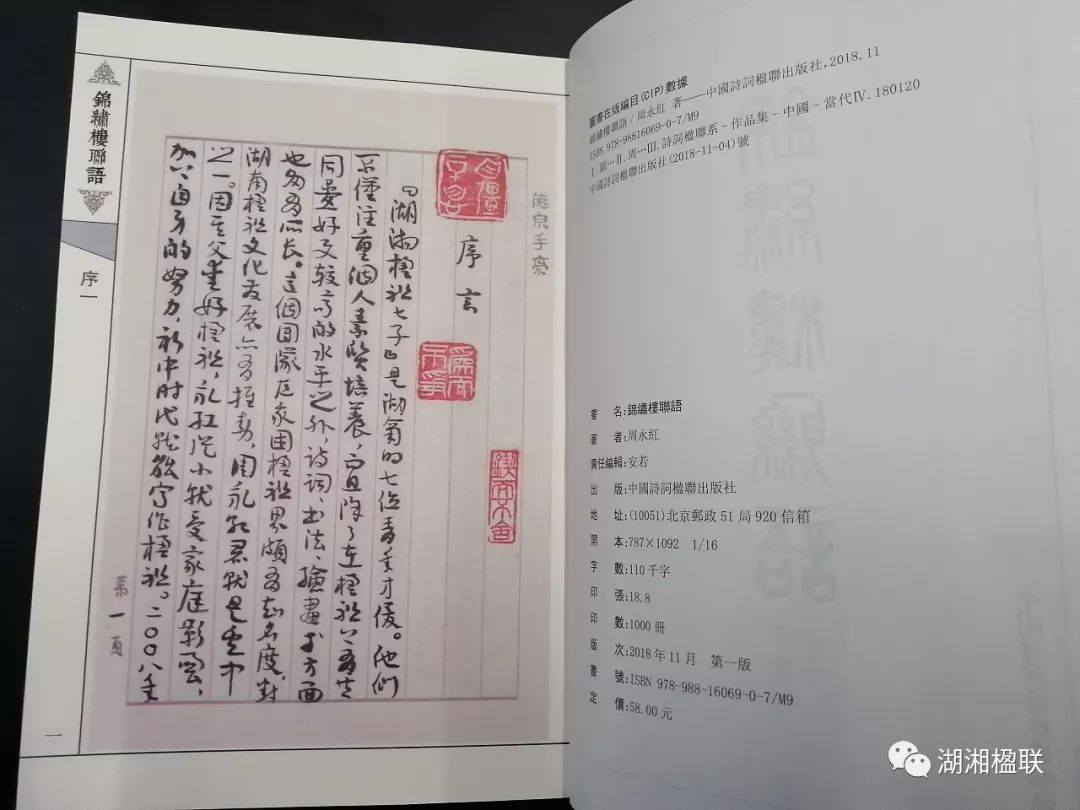 錦繡樓聯語
序一
一
德泉手稾
序言
『湖湘楹联七子』是湖南的七位青年才俊。他们
不僅注重個人素質培養，而且除了在楹联上有共
同爱好及較高的水平之外，诗词、书法、绘画方面
也多有所长。这個团隊在我国楹联界頗有知名度，对
湖南楹联文化发展亦有推動，周永红君就是其中
之一。因其父爱好楹联，永红從小就受家庭影响，
加以自身的努力，初中时代就能写作楹联。二〇〇八年
第一頁
圖書在版編目(CIP)數據
錦繡樓聯語/周永紅 著——中國詩詞楹聯出版社,2018.11
ISBN 978-98816069-0-7/M9
Ⅰ.錦…Ⅱ.周…Ⅲ.詩詞楹聯系-作品集-中國-當代Ⅳ.180120
中國詩詞楹聯出版社(2018-11-04)號
書 名:錦繡樓聯語
著 者:周永紅
責任編輯:安若
出 版:中國詩詞楹聯出版社
地 址:(10051)北京郵政51局920信箱
開 本:787×1092 1/16
字 數:110千字
印 張:18.8
印 數:1000冊
版 次:2018年11月 第一版
書 號:ISBN 978-988-16069-0-7/M9
定 價:58.00元
湖湘楹联